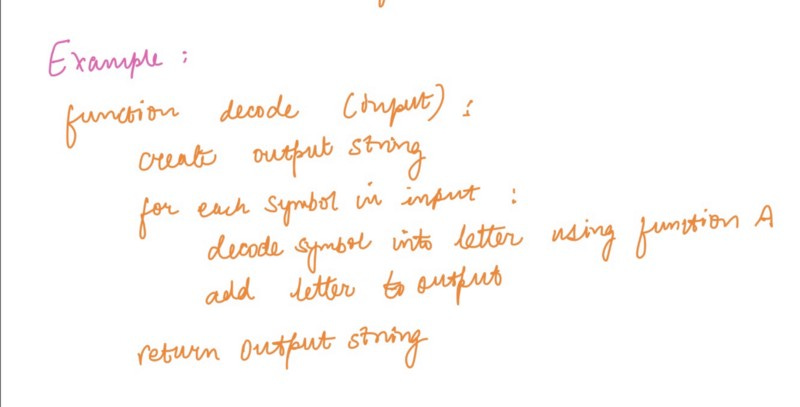 Example :
function decode (input) :
create output string
for each symbol in input :
decode symbol into letter using function A
add letter to output
return output string